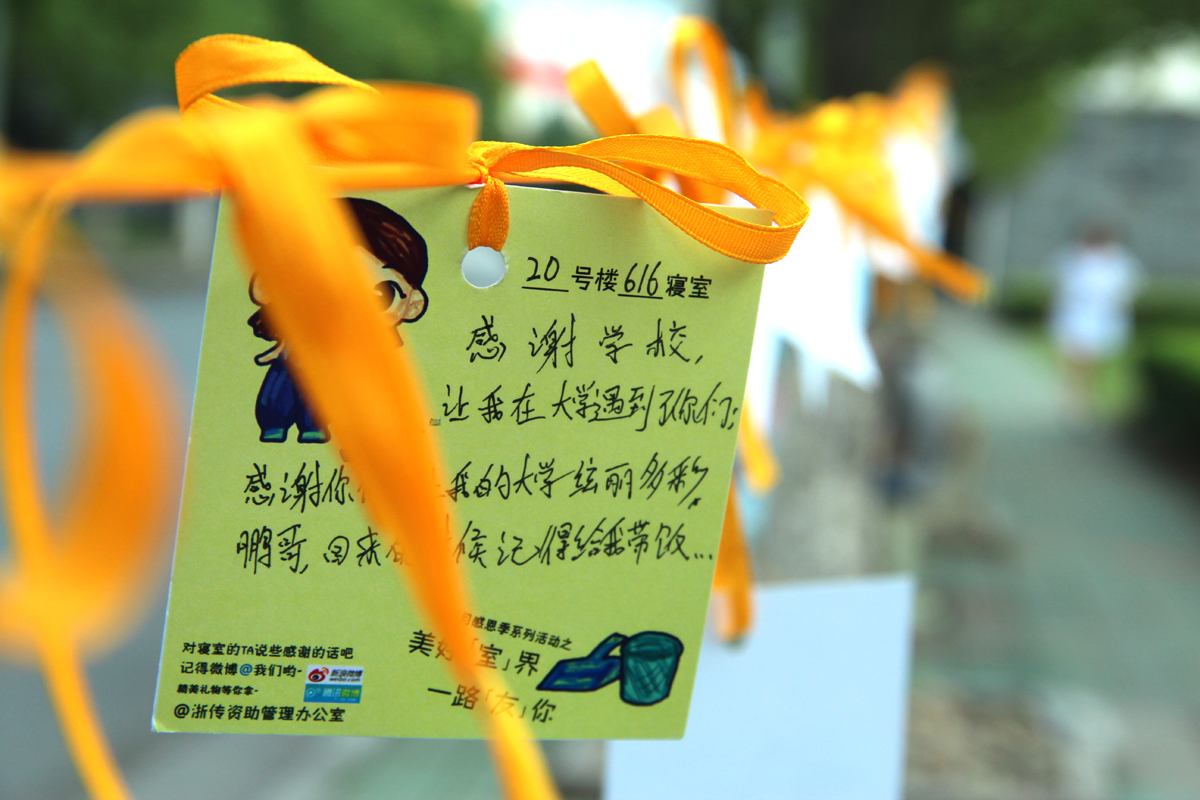 20号楼616寝室
感谢学校,
让我在大学遇到了你们;
感谢你 我的大学绚丽多彩,
鹏哥,回来 候记得给我带饭...
对寝室的TA说些感谢的话吧
记得微博@我们哟~
新浪微博
weibo.com
腾讯微博
精美礼物等你拿~
@浙传资助管理办公室
感恩季系列活动之
美好「室」界
一路「友」你